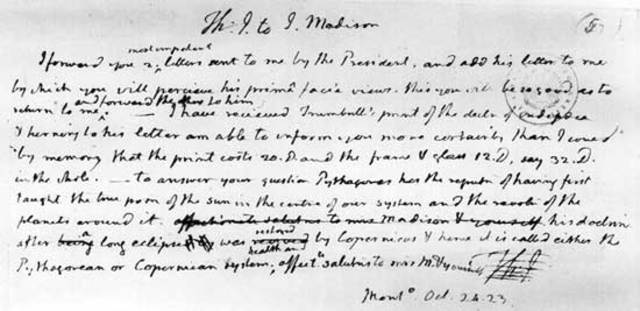 Th: J. to J. Madison
(5)
most important
I forward you 2, letters sent to me by the President, and add his letter to me
by which you will percieve his primâ facie views. this you will be so good as to
and forward the other to him
return to me ^ — I have recieved Trumbull's print of the decln of independce
& turning to his letter am able to inform you more certainly than I could
by memory that the print costs 20. D and the frame & glass 12. D, say 32. D.
in the whole. — to answer your question Pythagoras has the reputn of having first
taught the true posn of the sun in the centre of our system and the revoln of the
planets around it. affectionate salutns to mrs Madison & yourself his doctrine
restored
after a long eclipse was by Copernicus & hence it is called either the
Pythagorean or Copernican system, affecte salutns to mrs M. & yourself
Th: J.
Monto. Oct. 24. 23.